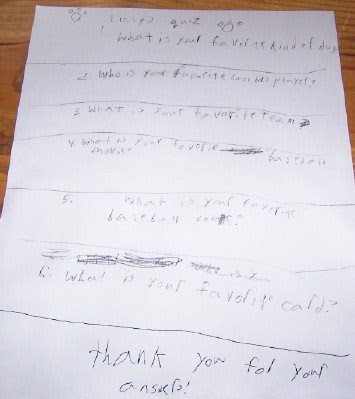 Lucy's quiz
1 What is your favorite kind of day
2. Who is your favorite baseball player?
3. What is your favorite team
4. What is your favorite baseball
movie?
5. What is your favorite
baseball book?
6. What is your favorite card?
thank you for your
answers!